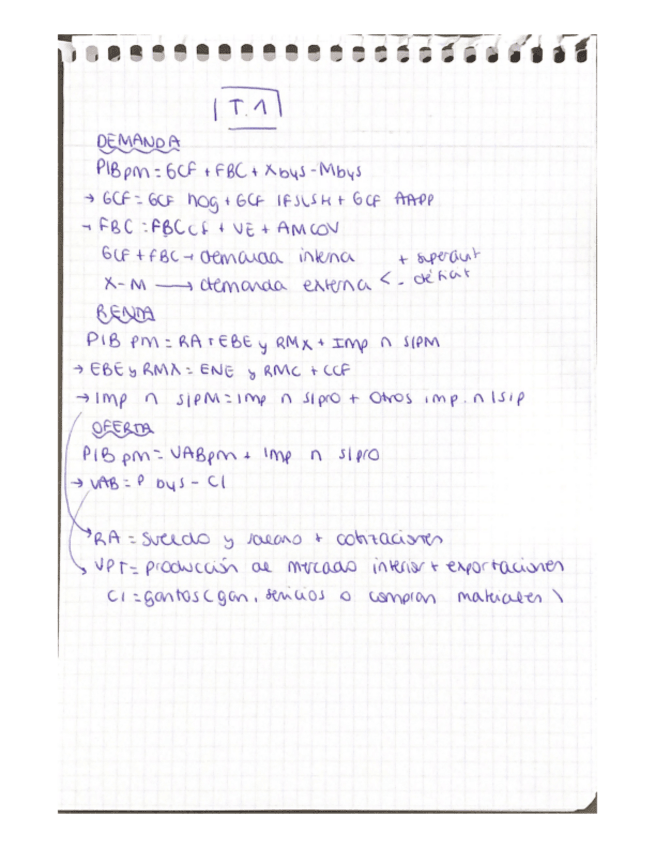 T.1
DEMANDA
PIB pm = GCF + FBC + X bys - M bys
→ GCF = GCF hog + GCF IFSLSH + GCF AAPP
→ FBC = FBCcf + VE + AMCOV
GCF + FBC → demanda interna + superavit
X-M → demanda externa < - déficit
RENTA
PIB pm = RA + EBE y RMX + Imp n s/PM
→ EBE y RMX = ENE y RMC + CCF
→ Imp n s/PM = Imp n s/pro + Otros imp. n/s/p
OFERTA
PIB pm = VABpm + Imp n s/pro
→ VAB = P bys - CI
RA = Sueldo y salario + cotizaciones
VPT = producción de mercado interior + exportaciones
CI = gastos (gan. servicios o compran materiales)